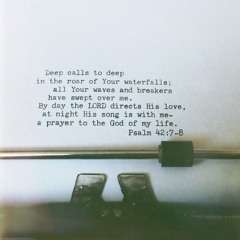 Deep calls to deep
in the roar of Your waterfalls;
all Your waves and breakers
have swept over me.
By day the LORD directs His love,
at night His song is with me-
a prayer to the God of my life.
Psalm 42:7-8